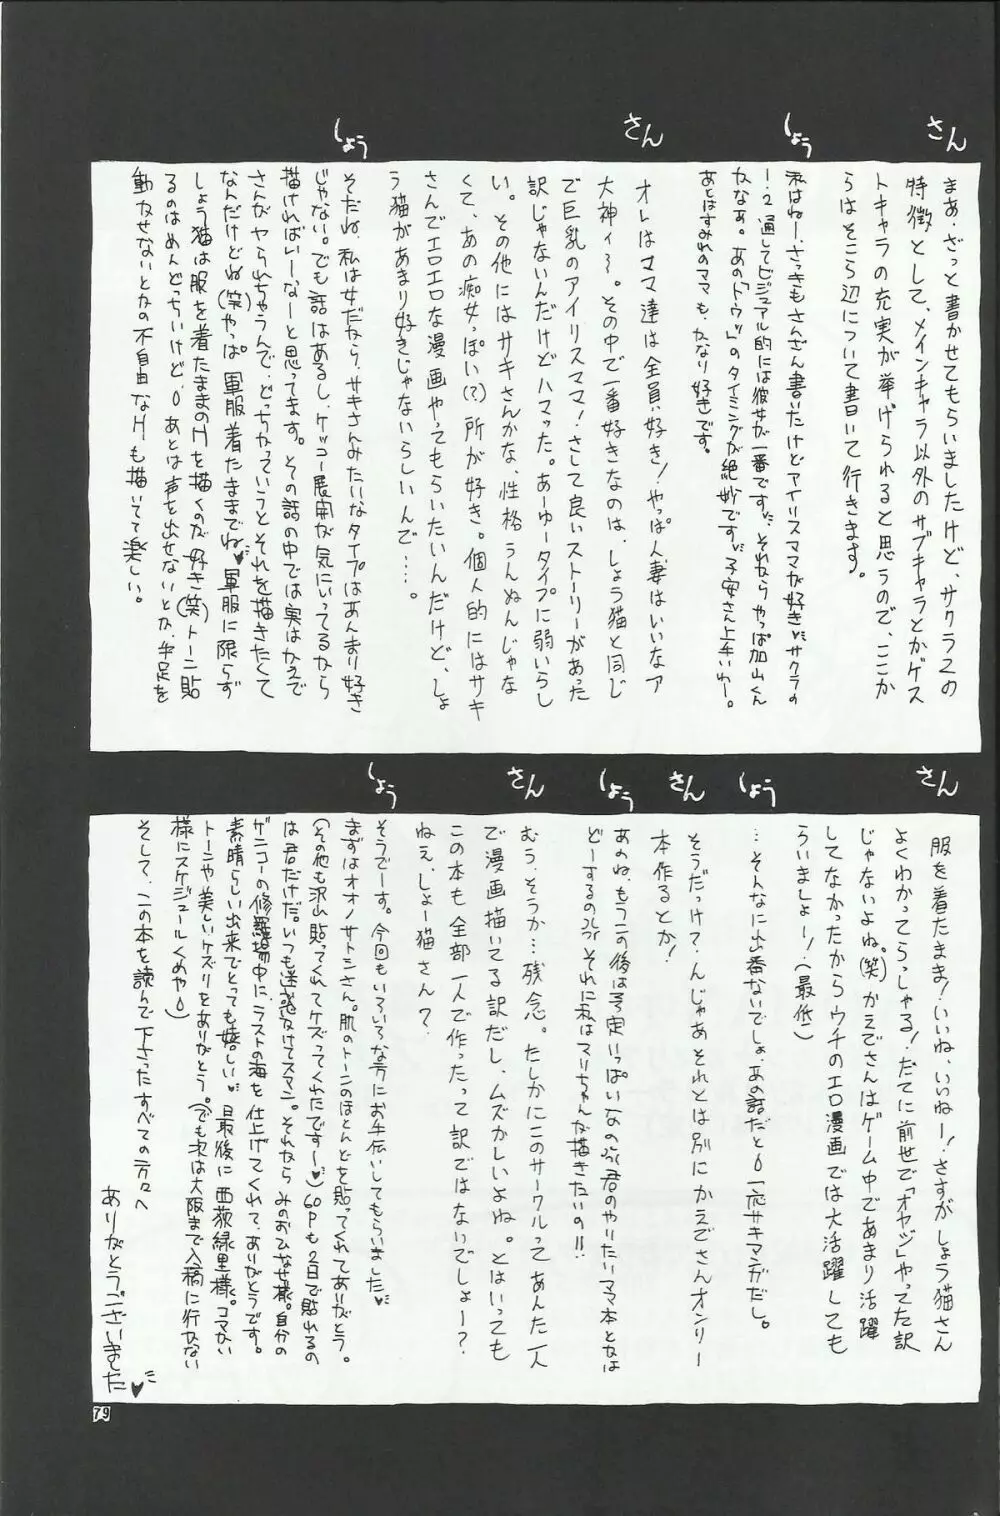 さん
まぁ、ざっと書かせてもらいましたけど、サクラ2の
特徴として、メインキャラ以外のサブキャラとかゲス
トキャラの充実が挙げられると思うので、ここか
らはそこら辺について書いて行きます。
しょう
私はねー、さっきもさんざん書いたけどアイリスママが好き♥サクラの
1・2通してビジュアル的には彼女が一番です。それからやっぱ加山くん
かなぁ。あの「トウッ」のタイミングが絶妙です。子安さん上手いわー。
あとはすみれのママも、かなり好きです。
さん
オレはママ達は全員好き!やっぱ人妻はいいなァ
大神ィ〜。その中で一番好きなのは、しょう猫と同じ
で巨乳のアイリスママ!さして良いストーリーがあった
訳じゃないんだけどハマッた。あーゆータイプに弱いらし
い。その他にはサキさんかな、性格うんぬんじゃな
くて、あの痴女っぽい(?)所が好き。個人的にはサキ
さんでエロエロな漫画やってもらいたいんだけど、しょ
う猫があまり好きじゃないらしいんで…。
しょう
そだね、私は女だから、サキさんみたいなタイプはあんまり好き
じゃない。でも話はあるし、ケッコー展開が気にいってるなら
描ければいーなーと思ってます。その話の中では実はかえで
さんがヤられちゃうんで、どっちかっていうとそれを描きたくて
なんだけどね(笑)やっぱ軍服着たままでね♥軍服に限らず
しょう猫は服を着たままのHを描くのが好き(笑)トーン貼
るのはめんどっちいけど、あとは声を出せないとか、手足を
動かせないとかの不自由なHも描いてて楽しい。
さん
服を着たまま!いいね、いいねー!さすがしょう猫さん
よくわかってらっしゃる!だてに前世で「オヤジ」やってた訳
じゃないよね。(笑)かえでさんはゲーム中であまり活躍
してなかったからウチのエロ漫画では大活躍しても
らいましょー!(最低)
しょう
…そんなに出番ないでしょ、あの話だと 一応サキマンガだし。
さん
そうだっけ?んじゃあそれとは別にかえでさんオンリー
本作るとか!
しょう
あのね、もうこの後は予定いっぱいなの 君のやりたいママ本とかは
どーするの それに私はマリちゃんが描きたいの!!
さん
むう、そうか…残念。たしかにこのサークルってあんた一人
で漫画描いてる訳だし、ムズかしいよね。とはいっても
この本も全部一人で作ったって訳ではないでしょー?
ねぇ、しょー猫さん?
しょう
そうでーす。今回もいろいろな方にお手伝いしてもらいました♥
まずはオオノサトシさん。肌のトーンのほとんどを貼ってくれてありがとう。
(その他も沢山貼ってくれてケズってくれたですー♥)60Pも2日で貼れるの
は君だけだ。いつも迷惑かけてスマン。それから みのおひなせ様。自分の
ゲンコーの修羅場中に、ラストの海を仕上げてくれて、ありがとうです。
素晴らしい出来でとっても嬉しい 最後に 西荻緑里様。コマかい
トーンや美しいケズリをありがとう。(でも次は大阪まで入稿に行かない
様にスケジュールくめや)
そして、この本を読んで下さったすべての方々へ
ありがとうございました♥
79